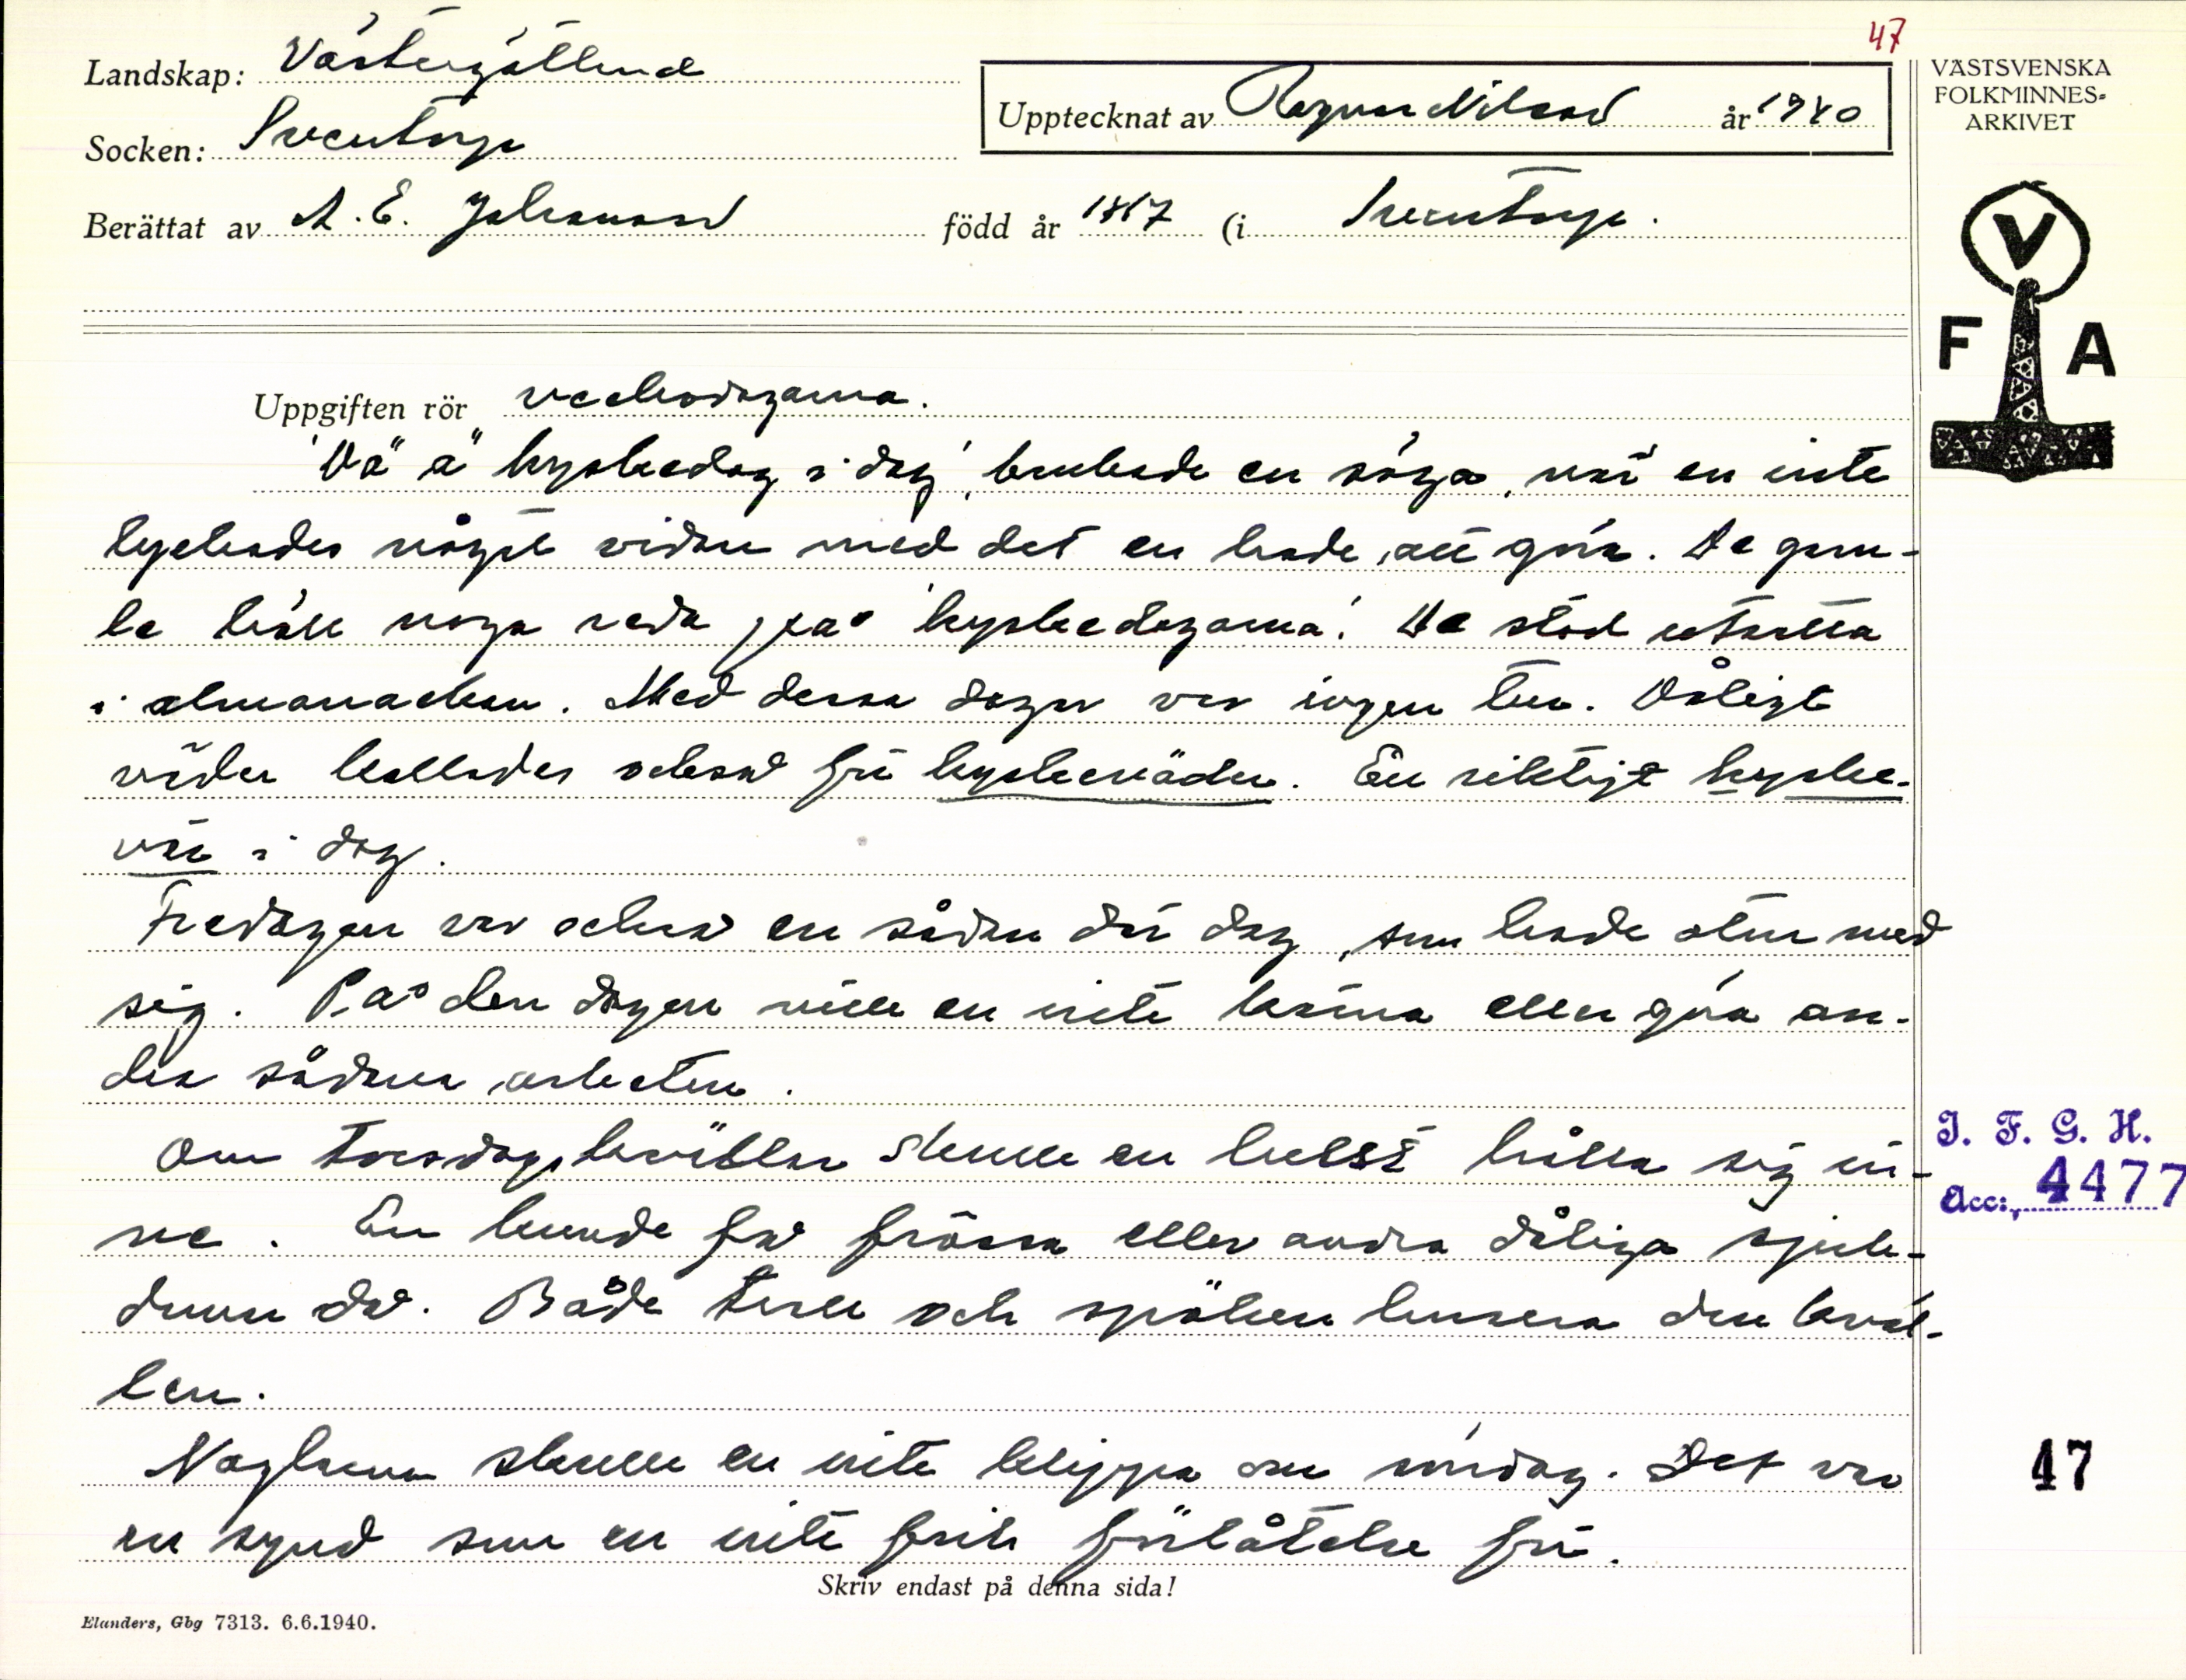 47
Landskap: Västergötland
Socken: Sventorp
Upptecknat av Ragnar Nilsson år 1940
Berättat av A. E. Johansson född år 1867 (i Sventorp.
VÄSTSVENSKA
FOLKMINNES-
ARKIVET
V
F A
Uppgiften rör veckodagarna.
'Dä ä kyskedag i dag', brukade en säga, när en inte
lyckades något vidare med det en hade att göra. De gam-
le höll noga reda på 'kyskedagarna'. De stod utsatta
i almanackan. Med dessa dagar var ingen tur. Dåligt
väder kallades också för kyskeväder. Ett riktigt kyske-
vär i dag.
Fredagen var också en sådan där dag, som hade otur med
sig. På den dagen ville en inte kärna eller göra an-
dra sådana arbeten.
Om torsdagskvällen skulle en helst hålla sig in-
ne. En kunde få frossa eller andra dåliga sjuk-
domar då. Både troll och spöken husera den kväl-
len.
Naglarna skulle en inte klippa om söndag. Det var
en synd som en inte fick förlåtelse för.
I. F. G. H.
Acc: 4477
47
Skriv endast på denna sida!
Elanders, Gbg 7313. 6.6.1940.